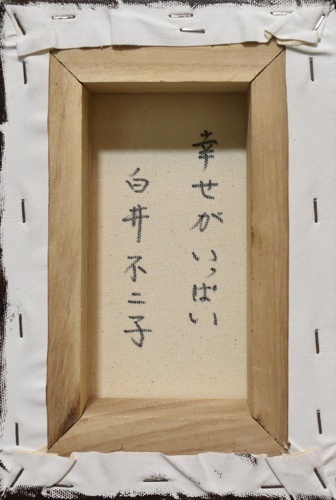 幸せがいっぱい
白井不二子